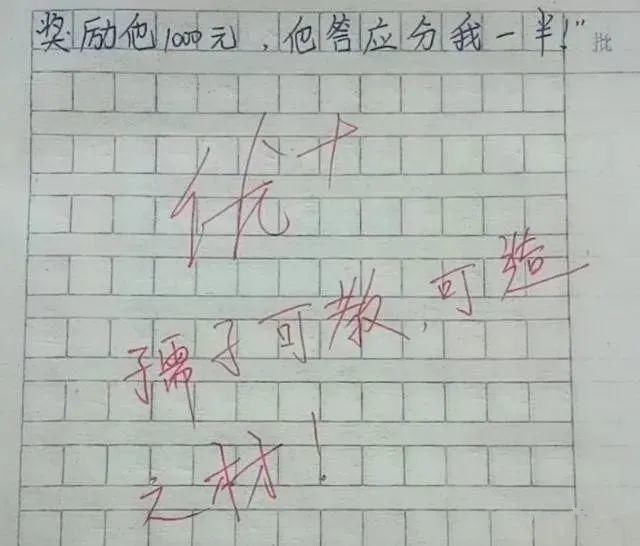 奖励他1000元，他答应分我一半！”
批
优+
孺子可教，可造
之材！